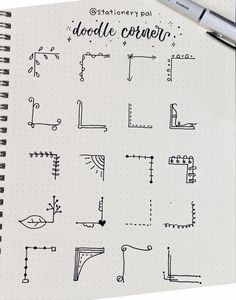 @stationerypal
doodle corner